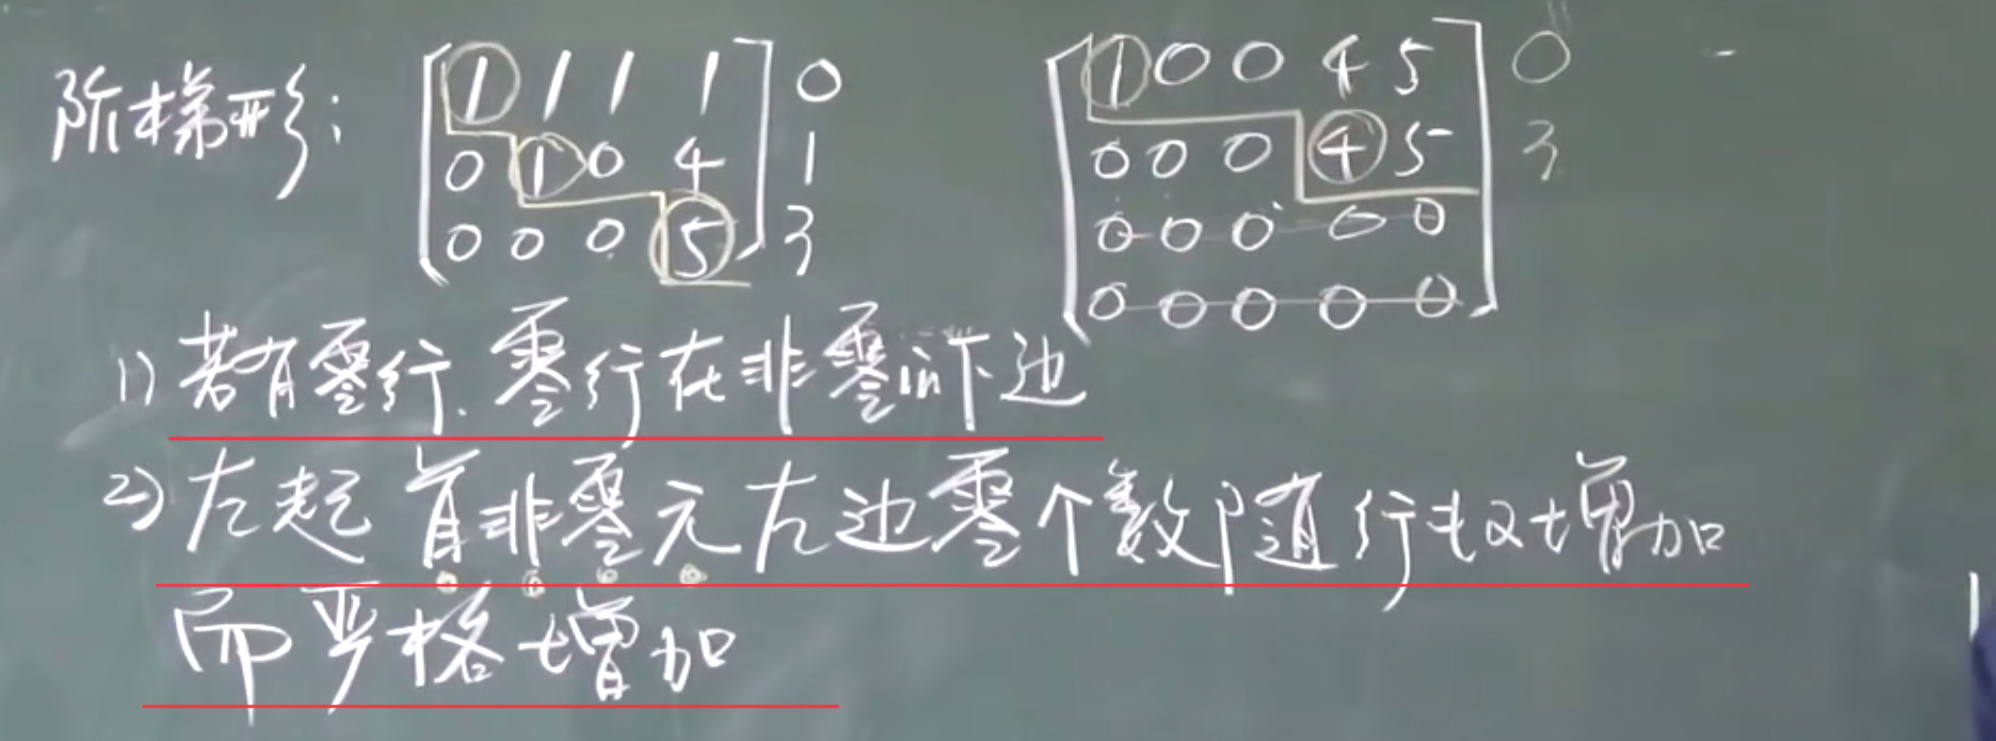 阶梯形: [1 1 1 1] 0 [1 0 0 4 5] 0
0 1 0 4 1 0 0 0 4 5 3
0 0 0 5 3 0 0 0 0 0
0 0 0 0 0
1) 若有零行.零行在非零的下边
2) 左起首非零元左边零个数随行数增加
而严格增加